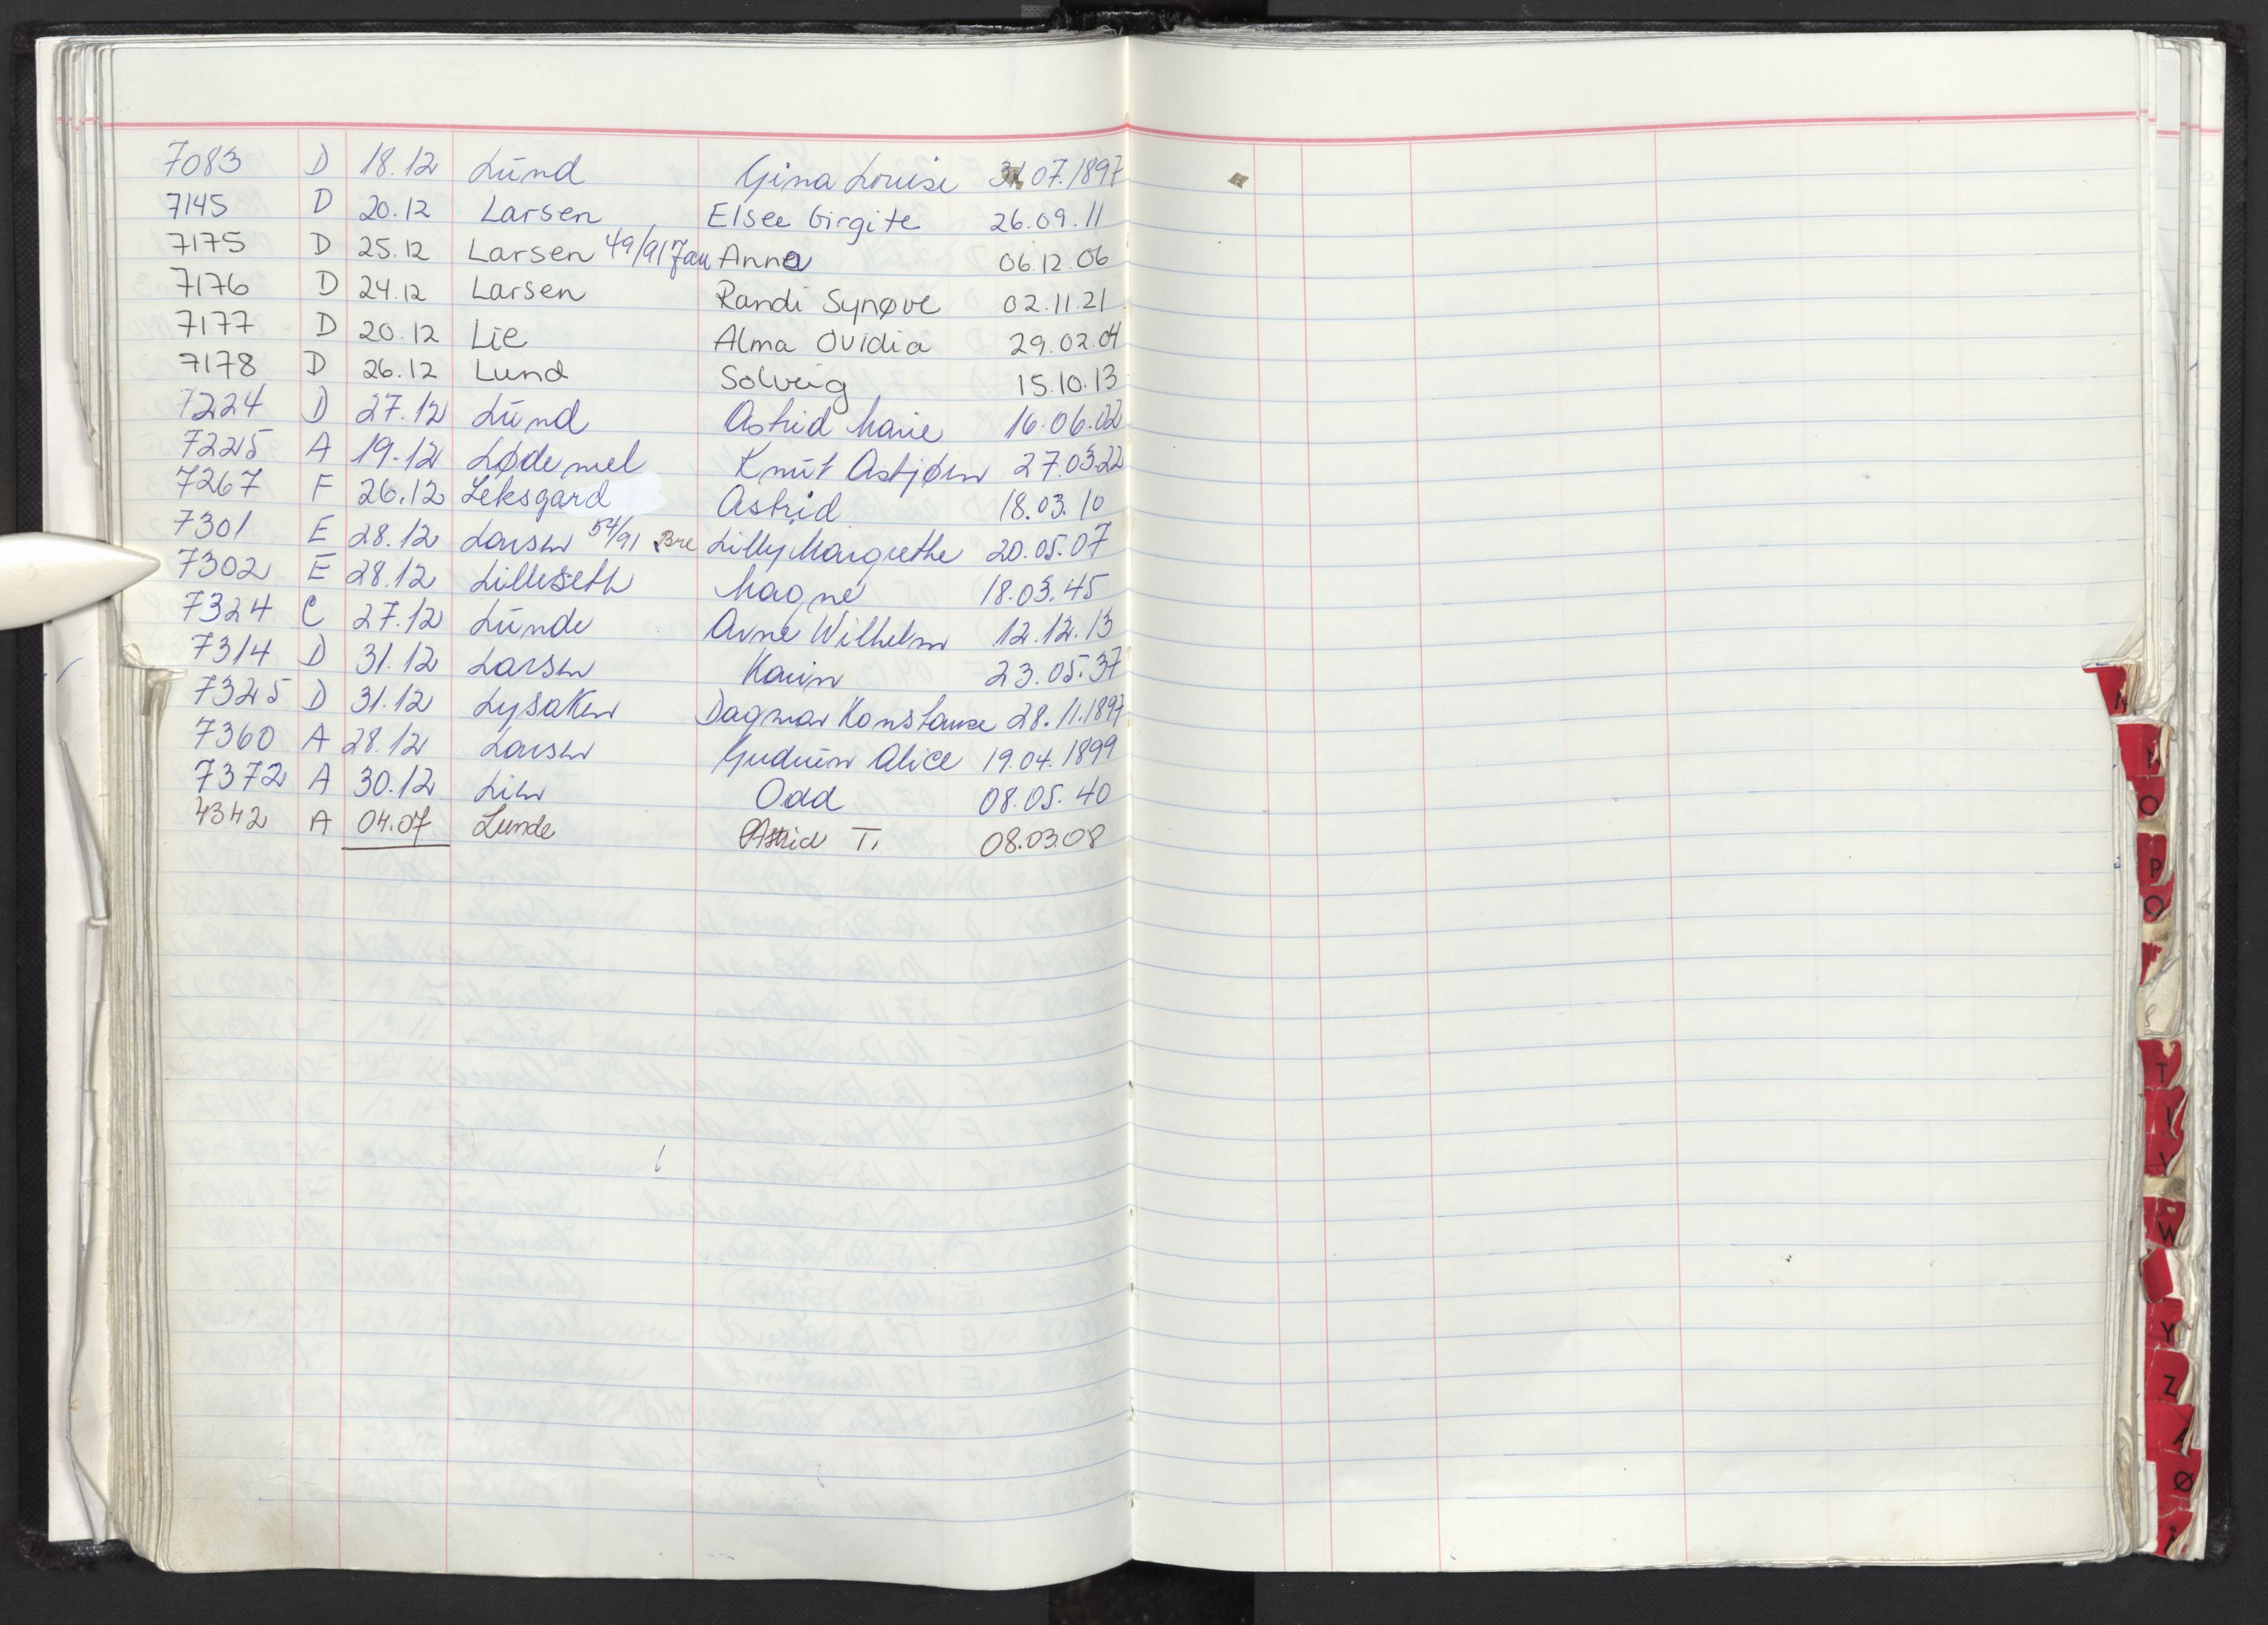 7083 D 18.12 Lund Gina Louise 31.07.1897
7145 D 20.12 Larsen Elsee Birgite 26.09.11
7175 D 25.12 Larsen 49/91 Jan Anna 06.12.06
7176 D 24.12 Larsen Randi Synøve 02.11.21
7177 D 20.12 Lie Alma Ovidia 29.02.04
7178 D 26.12 Lund Solveig 15.10.13
7224 D 27.12 Lund Astrid Marie 16.06.02
7225 A 19.12 Lødemel Knut Asbjørn 27.03.22
7267 F 26.12 Leksgard Astrid 18.03.10
7301 E 28.12 Larsen 54/91 Bre Lilly Margrethe 20.05.07
7302 E 28.12 Lilleseth Magne 18.03.45
7324 C 27.12 Lunde Arne Wilhelm 12.12.13
7314 D 31.12 Larsen Karin 23.05.37
7325 D 31.12 Lysaker Dagmar Konstanse 28.11.1897
7360 A 28.12 Larsen Gudrun Alice 19.04.1899
7372 A 30.12 Lien Odd 08.05.40
4342 A 04.07 Lunde Astrid T. 08.03.08
O
P
Q
T
V
W
Y
Z
Ø